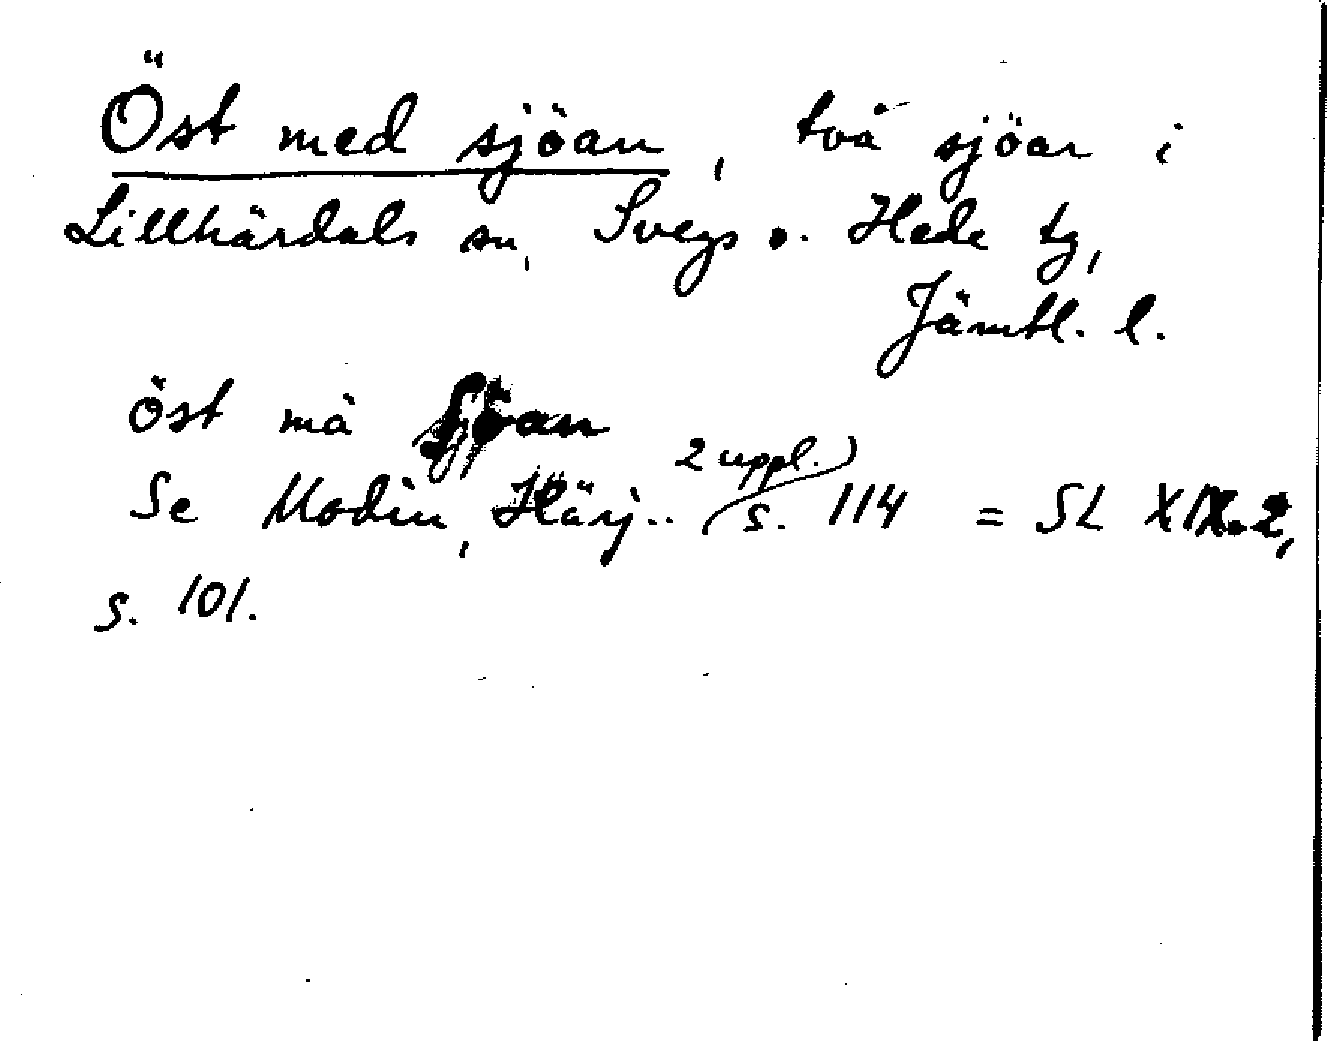 Öst med sjöan, två sjöar i
Lillhärdals sn, Svegs o. Hede tg,
Jämtl. l.
öst mä sjöan
Se Modin, Härj.. 2 uppl. s. 114 = SL XIX.2,
s. 101.